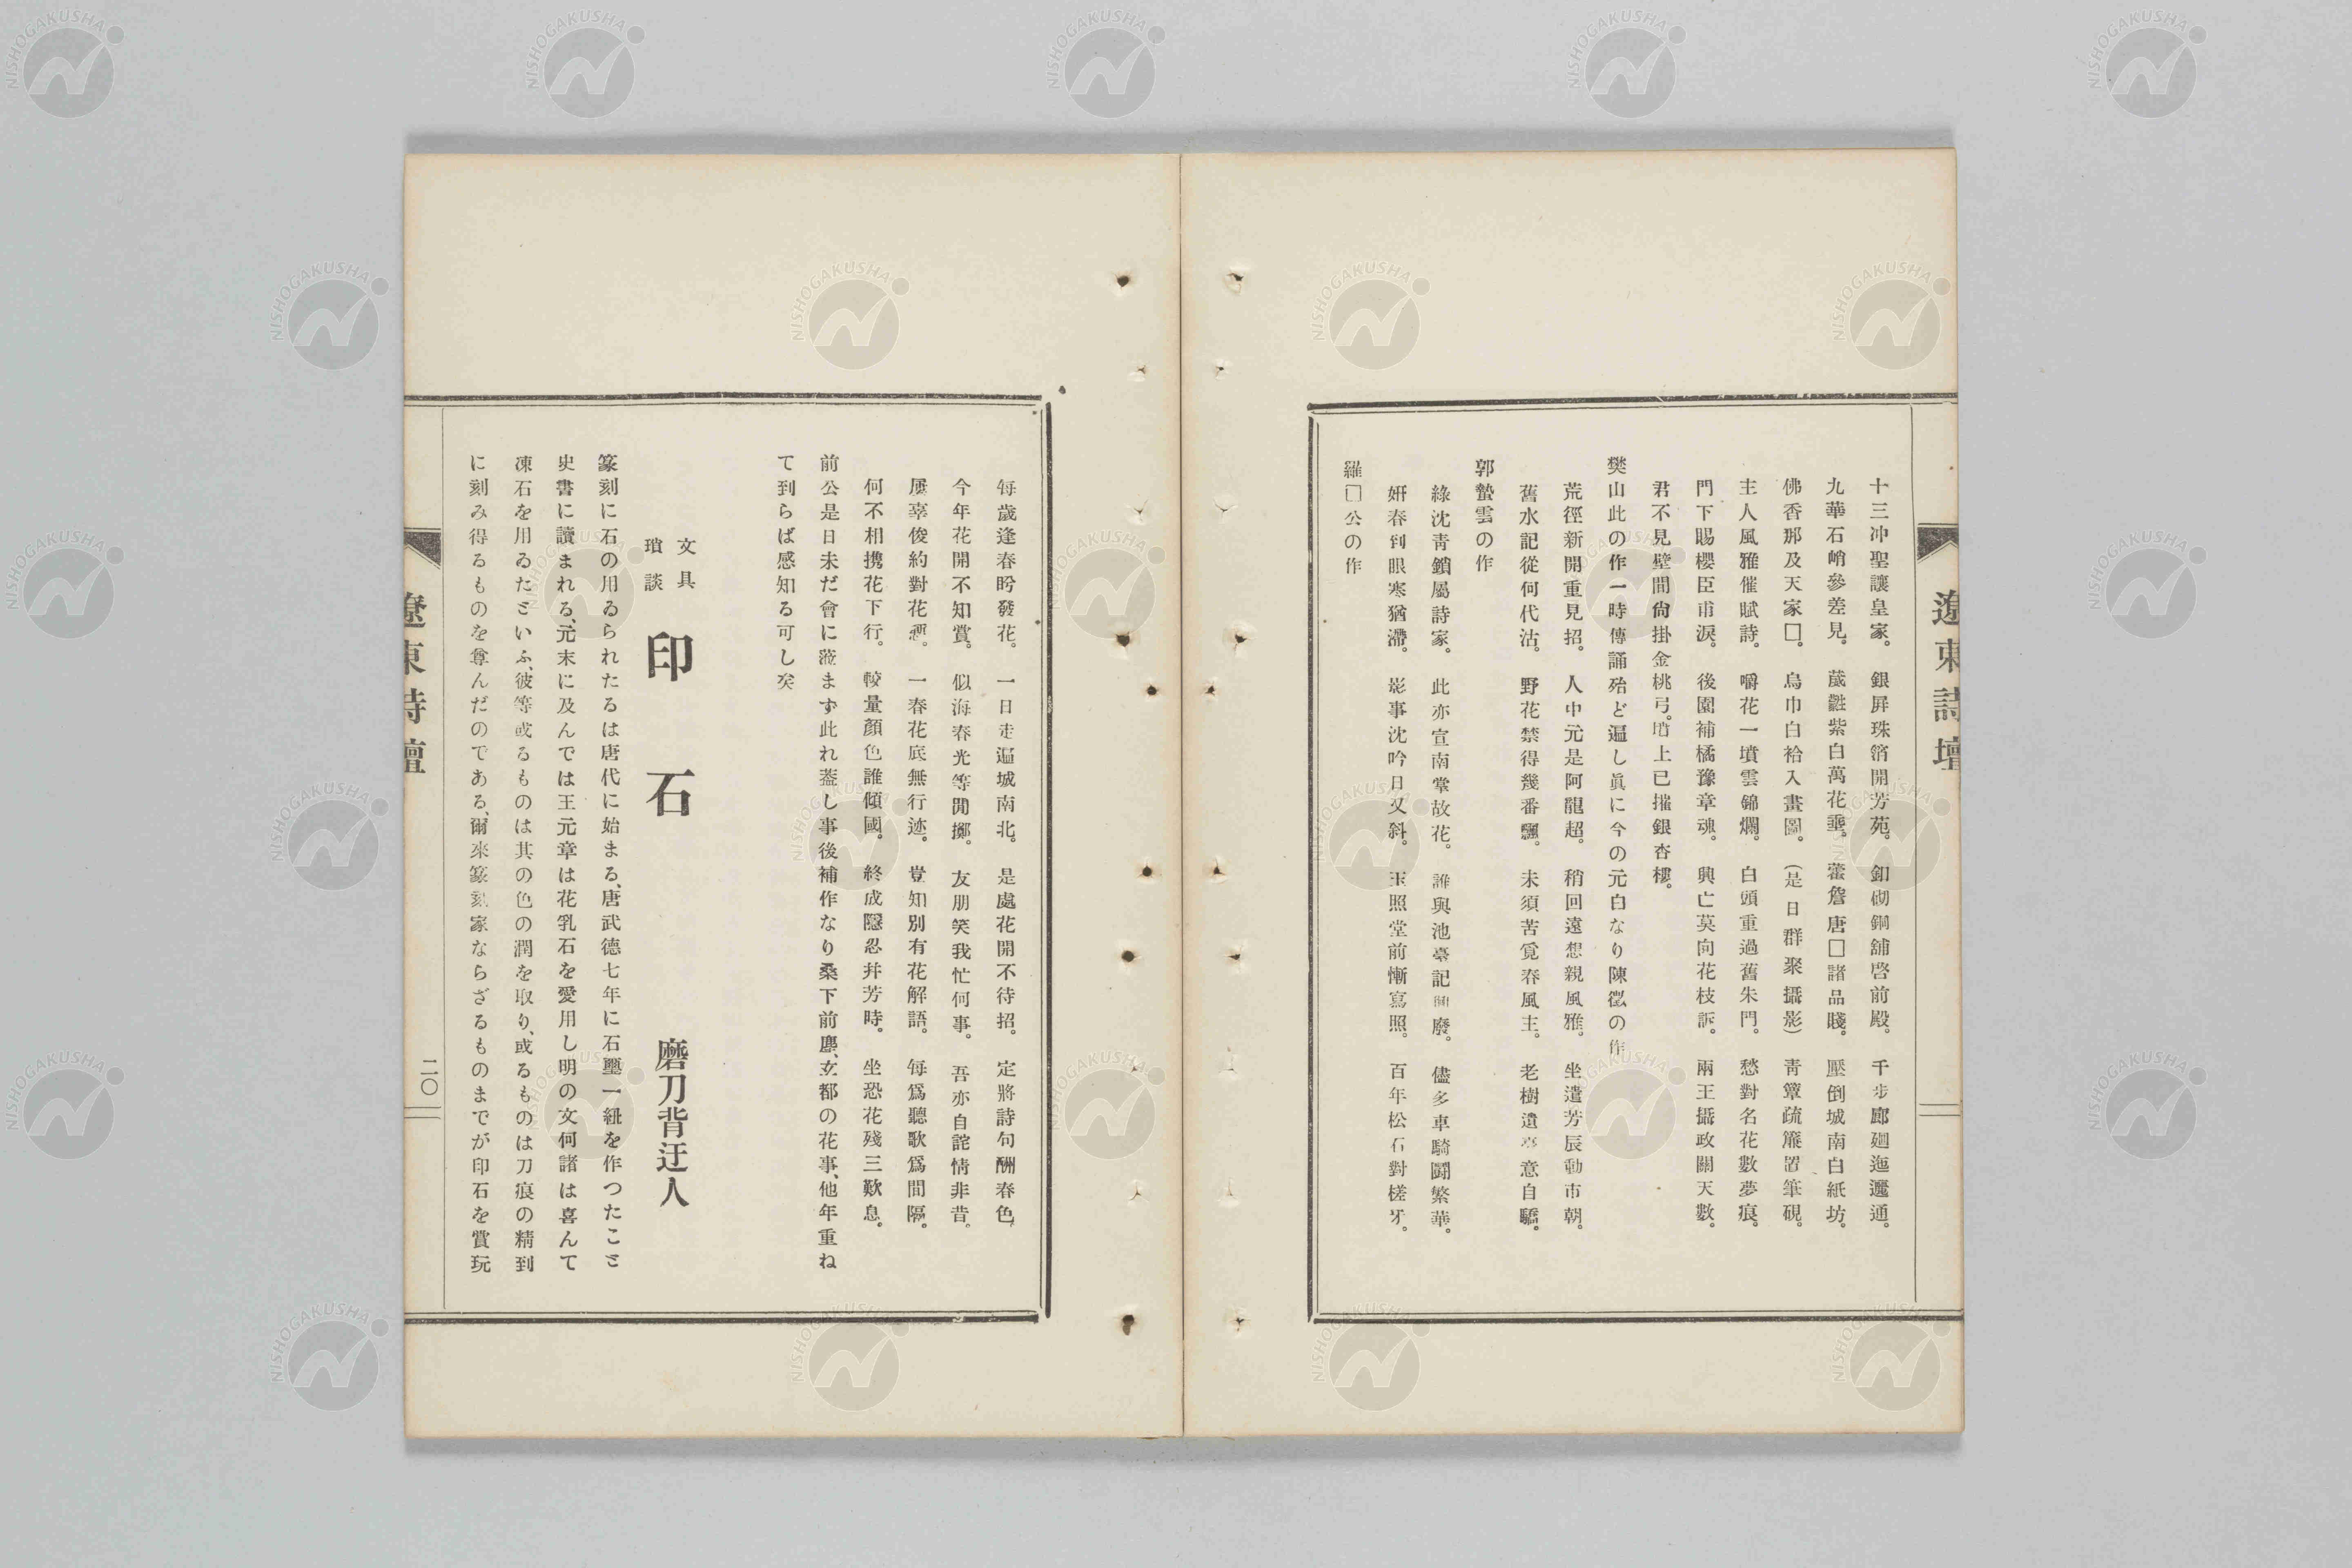 遼東詩壇
十三冲聖讓皇家。銀屏珠箔開芳苑。釦砌銅舖啓前殿。千步廊廻迤邐通。
九華石峭參差見。葳蕤紫白萬花重。藿詹唐□諸品賤。壓倒城南白紙坊。
佛香那及天家□。烏巾白袷入畫圖。(是日群聚攝影)靑簟疏簾置筆硯。
主人風雅催賦詩。嚼花一墳雲錦爛。白頭重過舊朱門。愁對名花數夢痕。
門下賜櫻臣甫淚。後園補橘豫章魂。興亡莫向花枝訴。兩王攝政關天數。
君不見壁間尙掛金桃弓。墻上已摧銀杏樓。
樊山此の作一時傳誦殆ど遍し眞に今の元白なり陳徵の作
荒徑新開重見招。人中元是阿龍超。稍回遠想親風雅。坐遣芳辰動市朝。
舊水記從何代沽。野花禁得幾番飄。未須苦覓春風主。老樹遺臺意自驕。
郭蟄雲の作
綠沈靑鎖屬詩家。此亦宣南掌故花。誰與池臺記興廢。儘多車騎鬪繁華。
姸春到眼寒猶滯。影事沈吟日又斜。玉照堂前慚寫照。百年松石對槎牙。
羅□公の作
每歲逢春盼發花。一日走遍城南北。是處花開不待招。定將詩句酬春色。
今年花開不知賞。似海春光等閒擲。友朋笑我忙何事。吾亦自詫情非昔。
屢辜俊約對花䩄。一春花底無行迹。豈知別有花解語。每爲聽歌爲間隔。
何不相携花下行。較量顏色誰傾國。終成隱忍幷芳時。坐恐花殘三歎息。
前公是日未だ會に蒞まず此れ葢し事後補作なり桑下前塵、玄都の花事、他年重ね
て到らば感知る可し矣
文具
瑣談
印石
磨刀背迂人
篆刻に石の用ゐられたるは唐代に始まる、唐武德七年に石璽一紐を作つたこと
史書に讀まれる、元末に及んでは王元章は花乳石を愛用し明の文何諸は喜んで
凍石を用ゐたといふ、彼等或るものは其の色の潤を取り、或るものは刀痕の精到
に刻み得るものを尊んだのである、爾來篆刻家ならざるものまでが印石を賞玩
遼東詩壇
二〇